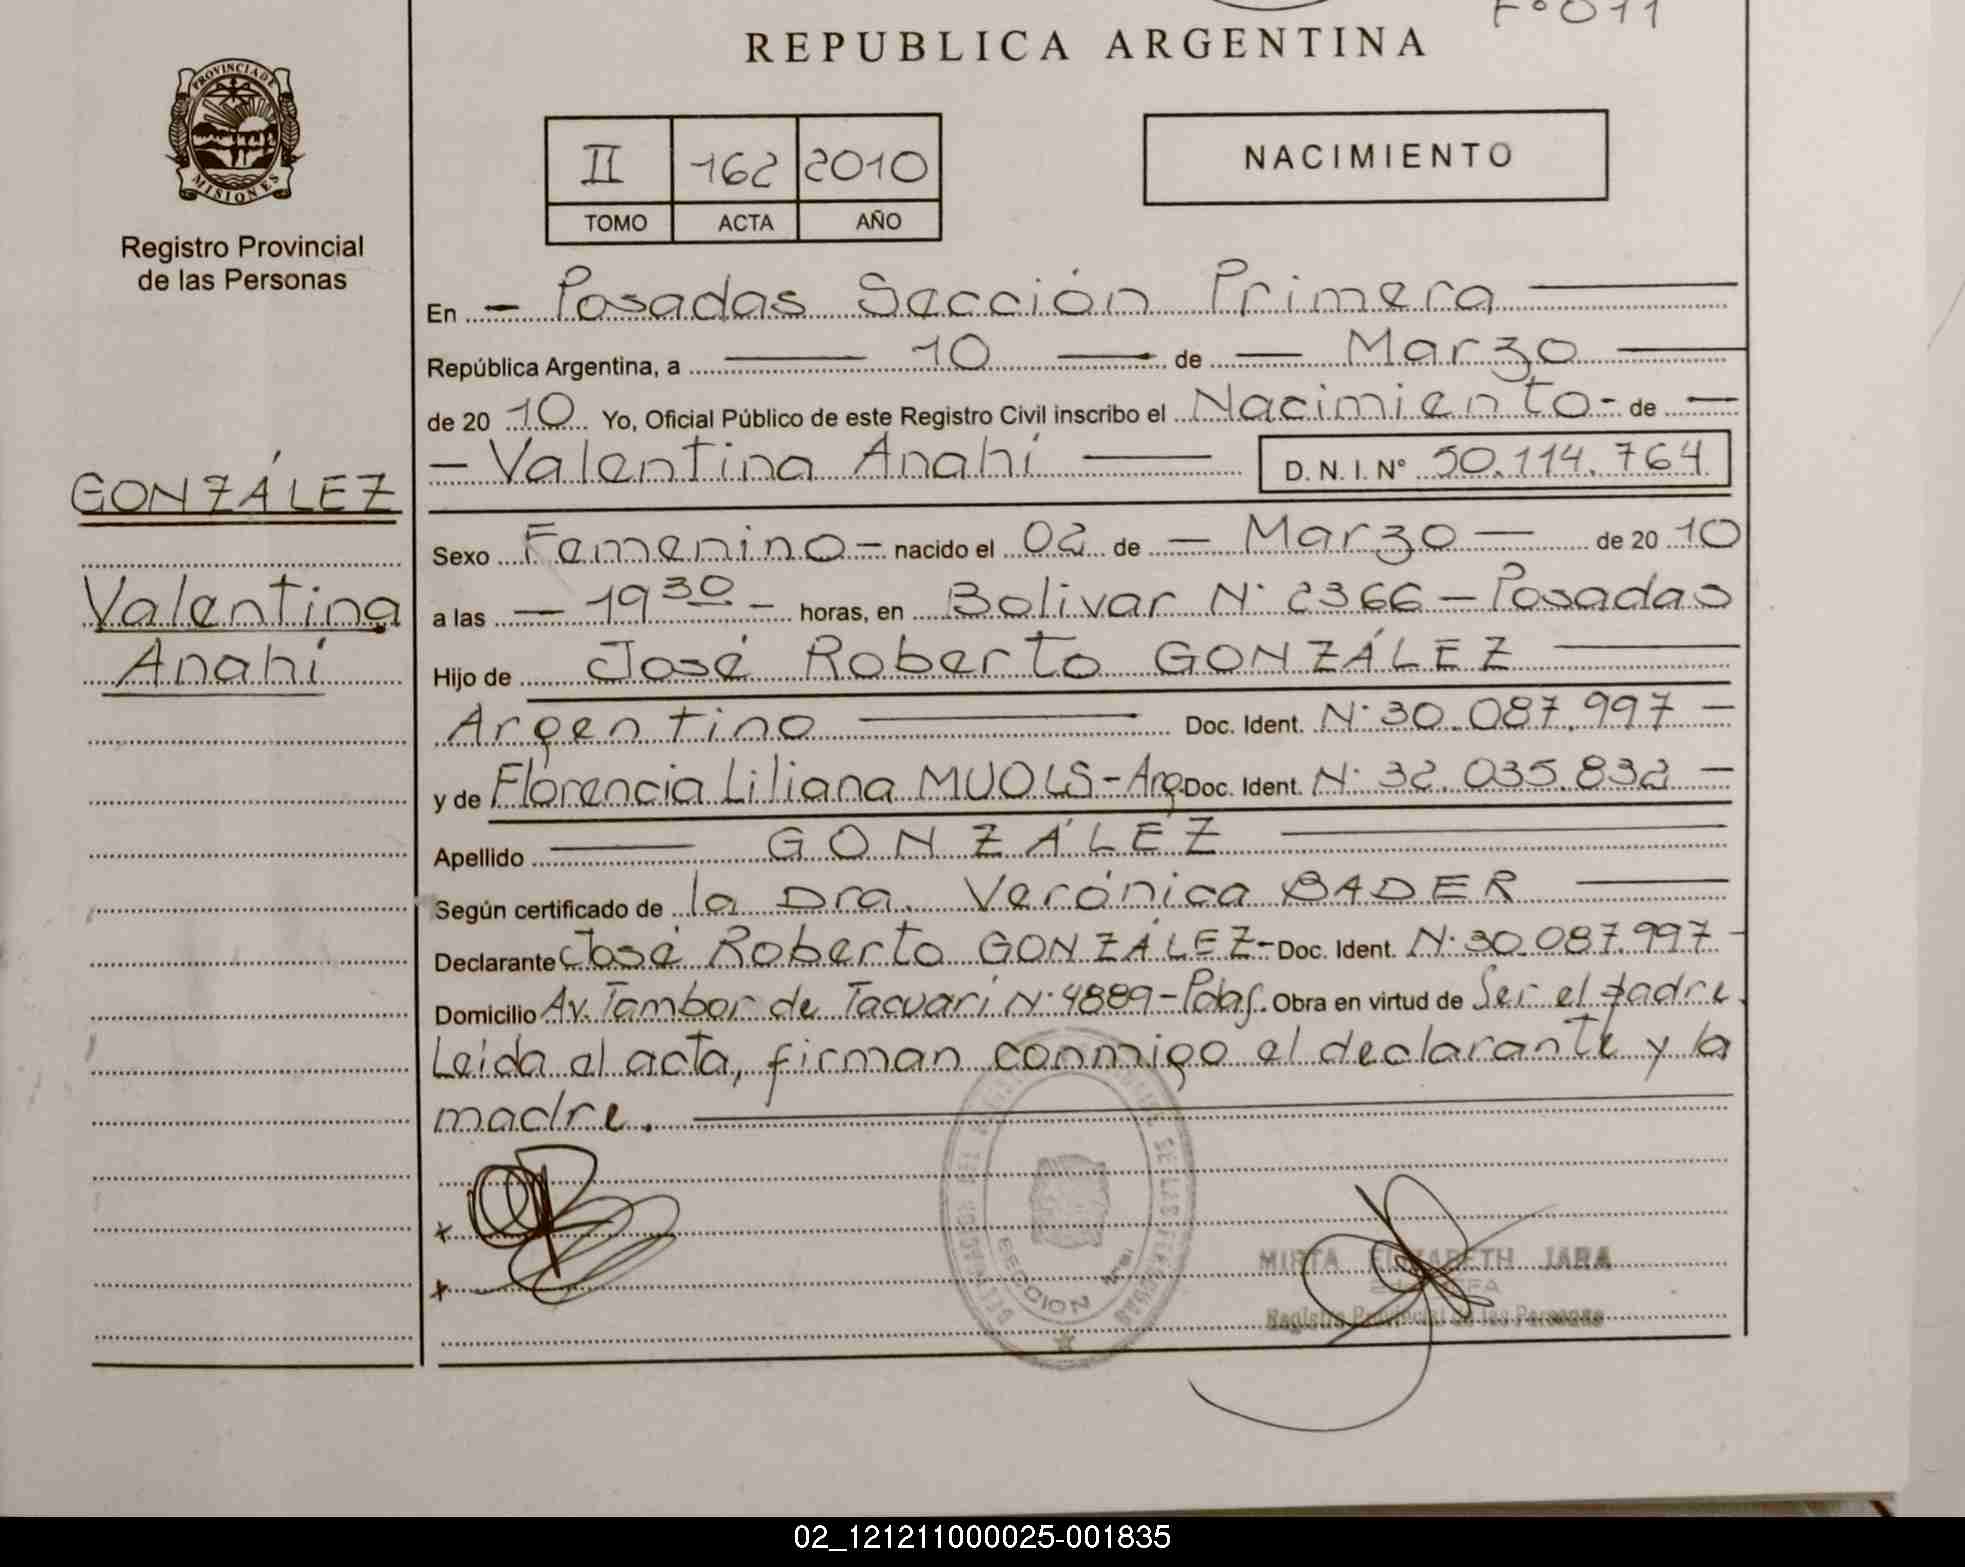 Fº 011
REPUBLICA ARGENTINA
PROVINCIA DE
MISIONES
Registro Provincial
de las Personas
II 162 2010
TOMO ACTA AÑO
NACIMIENTO
En - Posadas Sección Primera
República Argentina, a 10 de Marzo
de 20 10 Yo, Oficial Público de este Registro Civil inscribo el Nacimiento - de
- Valentina Anahí D. N. I. Nº 50.114.764
GONZÁLEZ
Valentina
Anahí
Sexo Femenino - nacido el 02 de - Marzo - de 20 10
a las - 19 30 - horas, en Bolivar Nº 2366 - Posadas
Hijo de José Roberto GONZÁLEZ
Argentino Doc. Ident. Nº 30.087.997 -
y de Florencia Liliana MUOLS - Arg. Doc. Ident. Nº 32.035.832 -
Apellido GONZÁLEZ
Según certificado de la Dra. Verónica BADER
Declarante José Roberto GONZÁLEZ - Doc. Ident. Nº 30.087.997 -
Domicilio Av. Tambor de Tacuarí Nº 4889 - Pdas. Obra en virtud de Ser el padre.
Leida el acta, firman conmigo el declarante y la
madre.
SECCION
MIRTA ELIZABETH JARA
Registro Provincial de las Personas
02_121211000025-001835